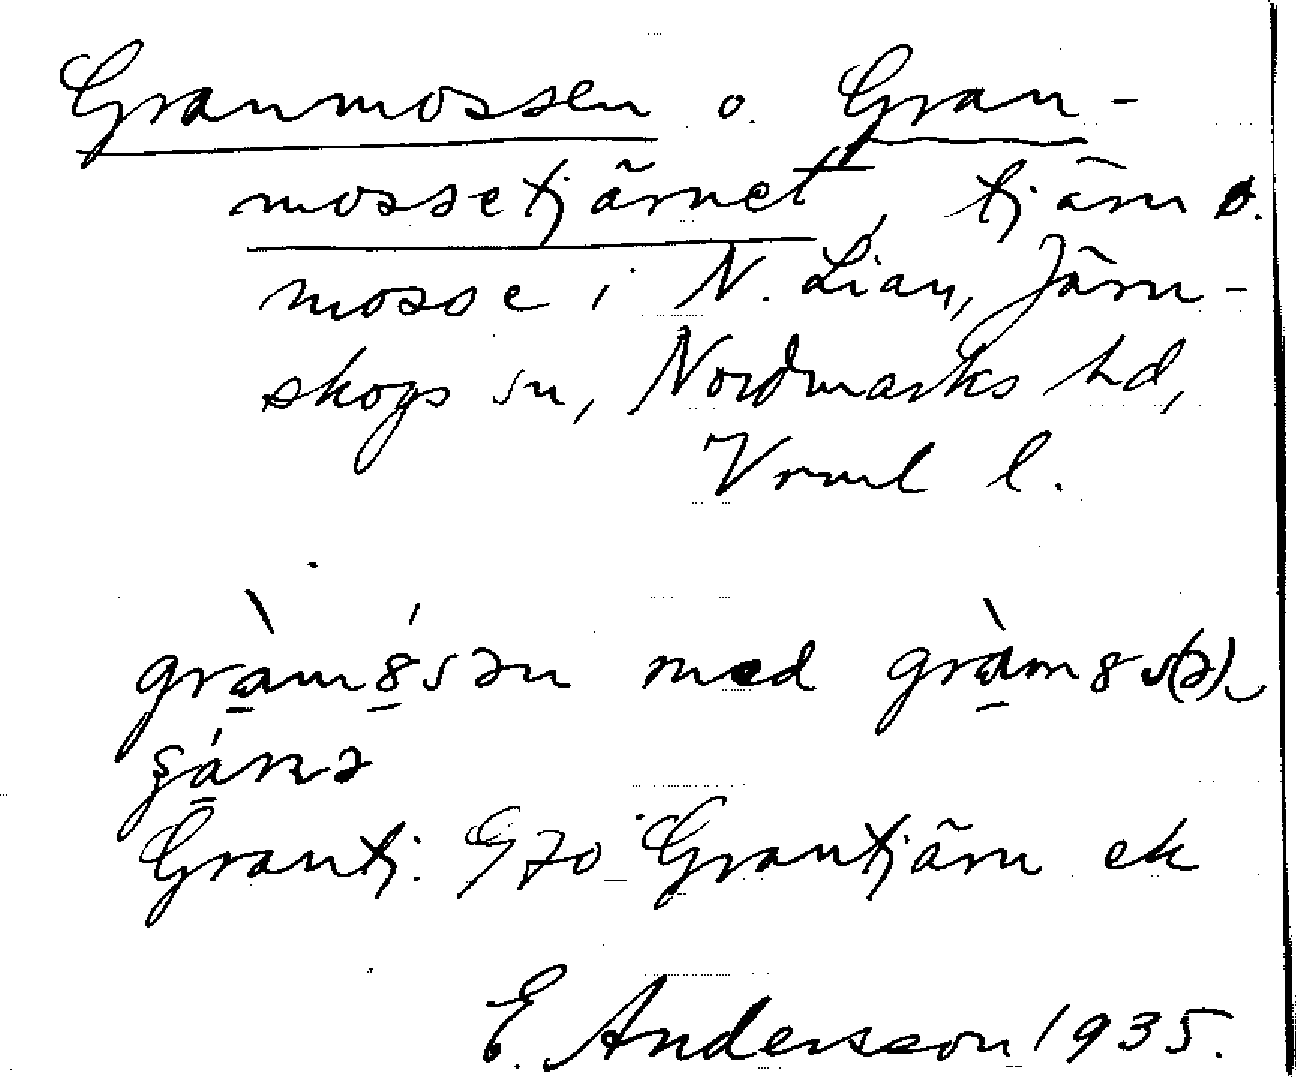 Granmossen o. Gran-
mossetjärnet, tjärn o.
mosse i N. Lian, Järn-
skogs sn, Nordmarks hd,
Vrml l.
med
Grantj. G70 Grantjärn ek
E. Andersson 1935.